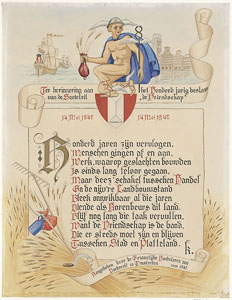 Ter herinnering aan het honderd jarig bestaan
van de Societeit "de Vriendschap"
14 Mei 1847 14 Mei 1947
Honderd jaren zijn vervlogen.
Menschen gingen af en aan.
Werk, waarop geslachten bouwden
Is sinds lang teloor gegaan.
Maar deez' schakel tusschen Handel
En de nijv're Landbouwstand
Bleek onwrikbaar al die jaren
Diende als Korenbeurs dit land.
Blijf nog lang die taak vervullen,
Want de Vriendschap is de band,
Die er steeds moet zijn en blijven
Tusschen Stad en Platteland.
Aangeboden door de